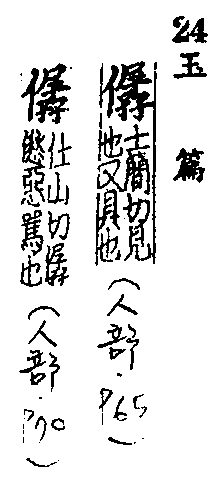 24玉篇
僝士簡切見也又具也（人部．P65）
僝仕山切僝僽惡罵也（人部．P70）